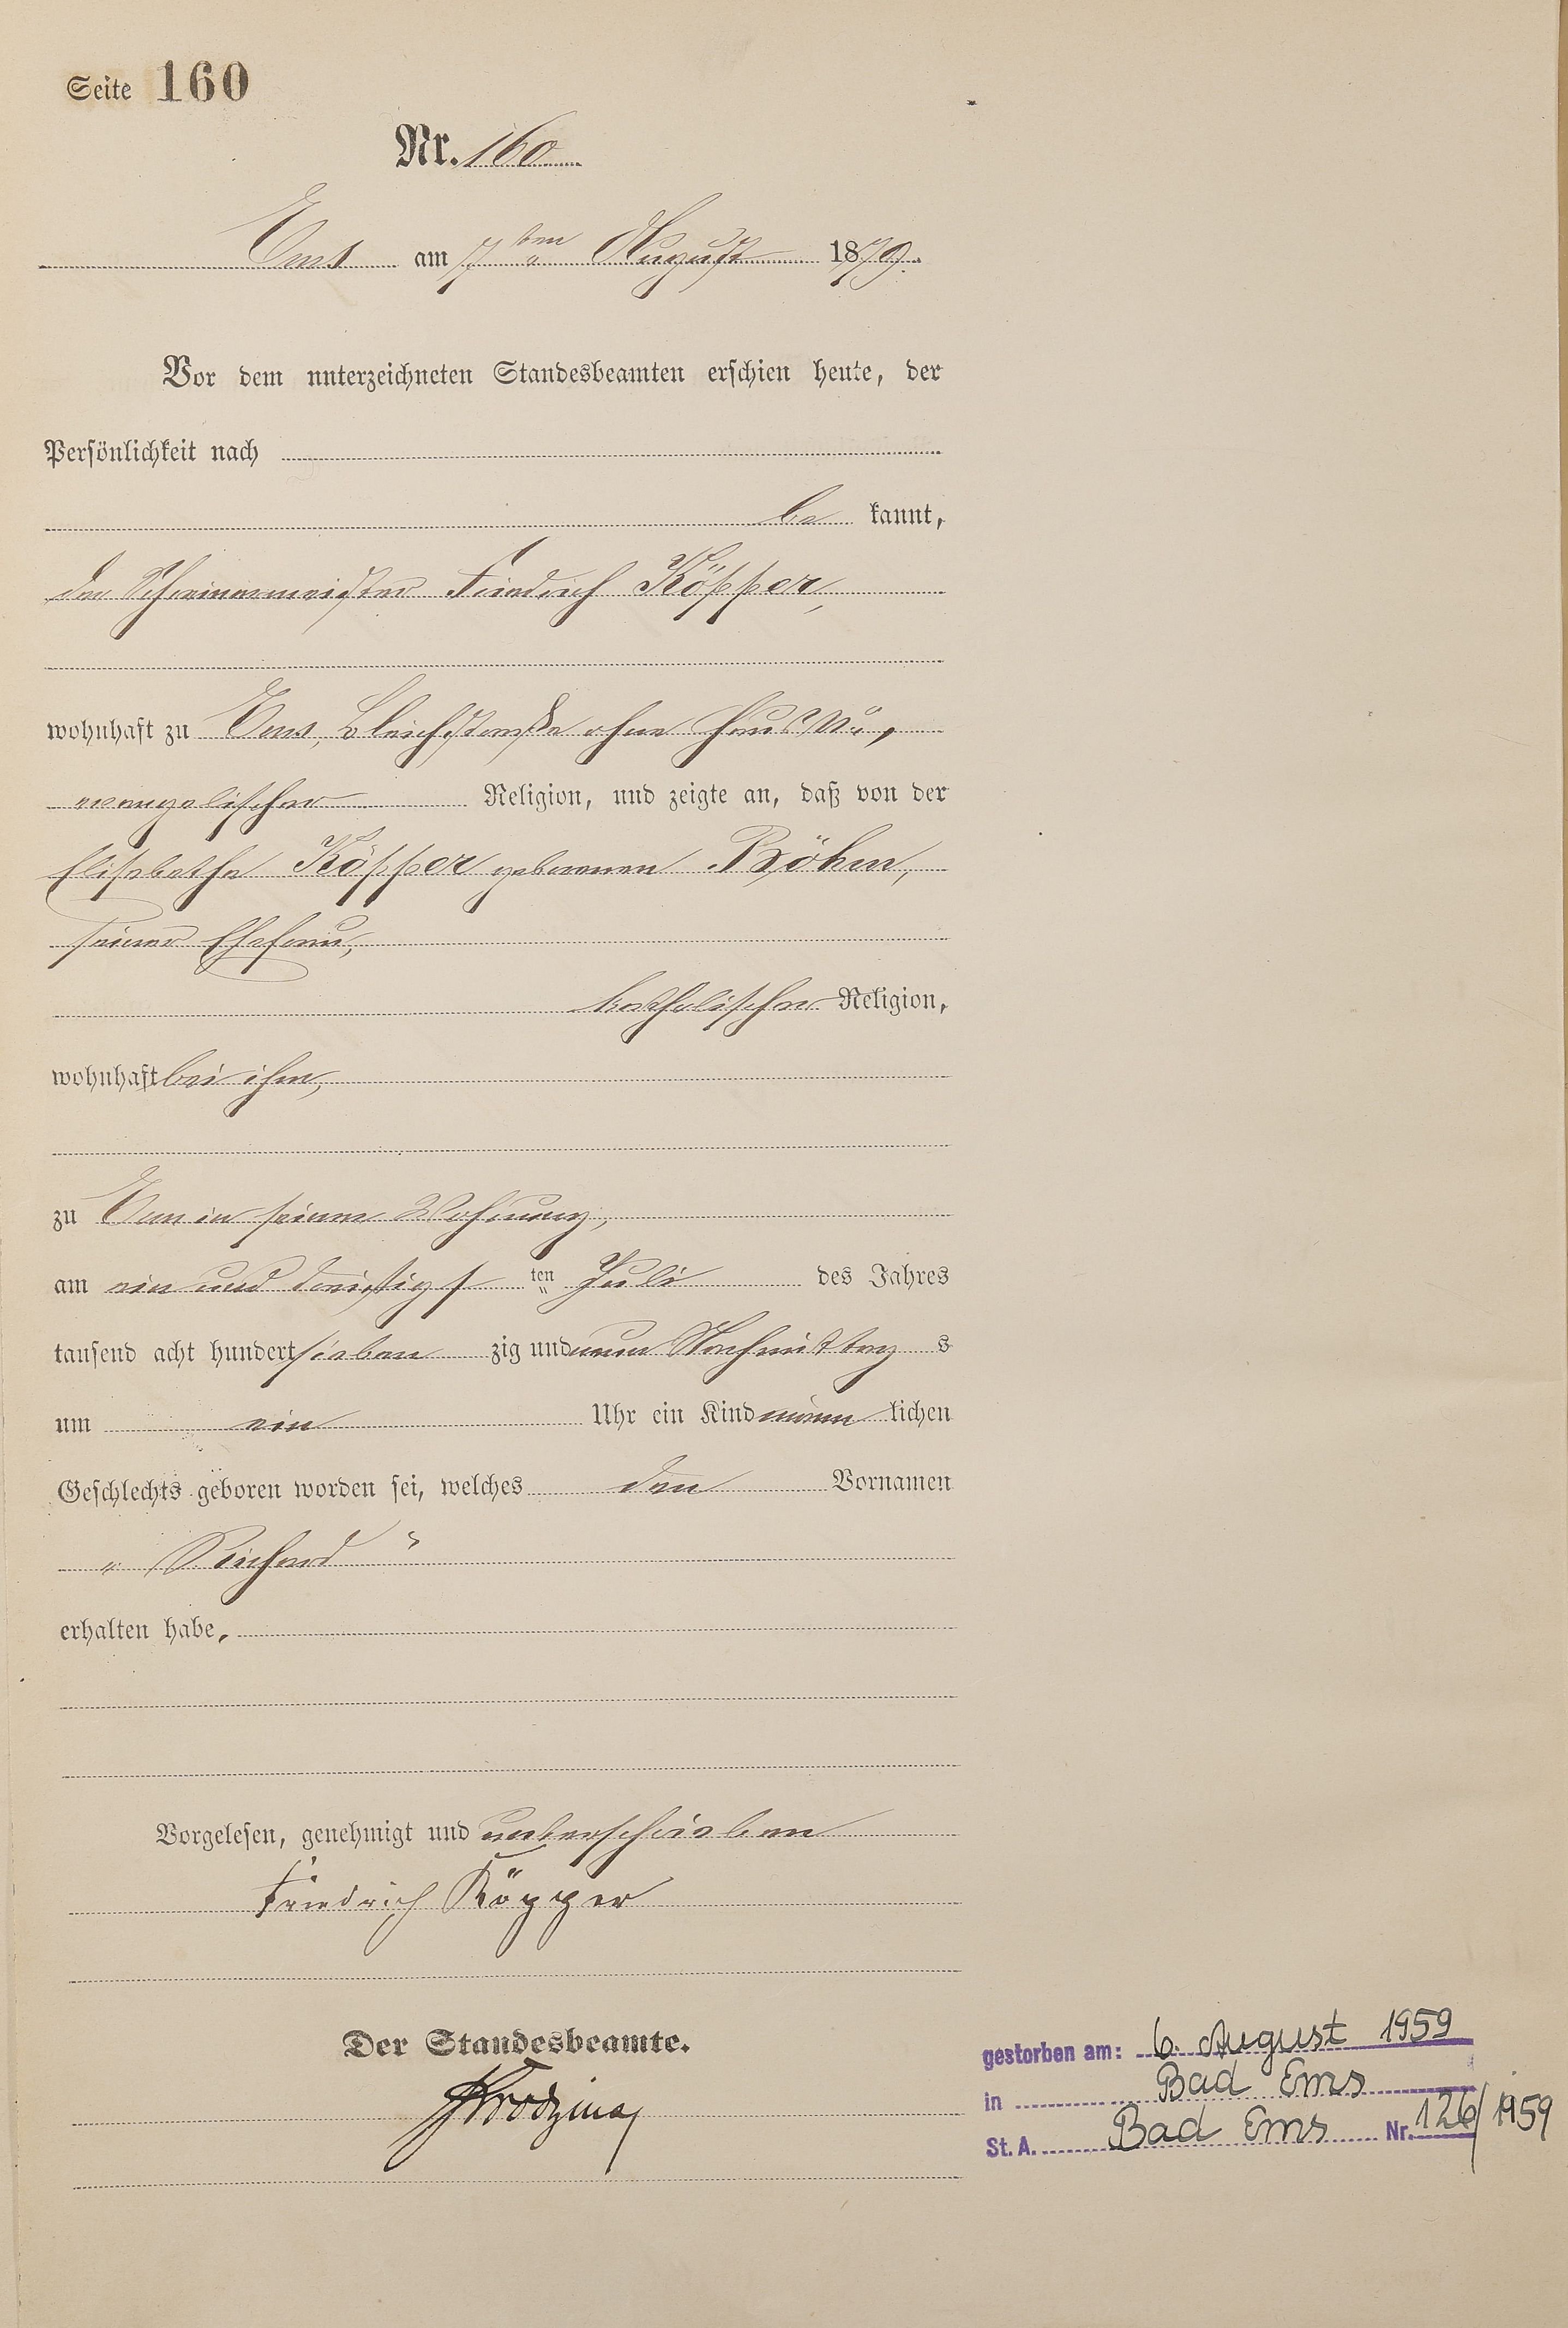 Seite 160
Nr. 160
Ems am 7ten August 1879.
Vor dem unterzeichneten Standesbeamten erschien heute, der
Persönlichkeit nach
be kannt,
der Schreinermeister Friedrich Köpper,
wohnhaft zu Ems, Bleichstraße ohne Haus Nr.,
evangelischer Religion, und zeigte an, daß von der
Elisabetha Köpper geborenen Böhm,
seiner Ehefrau,
katholischer Religion,
wohnhaft bei ihm,
zu Ems in seiner Wohnung,
am ein und dreißigsten Juli des Jahres
tausend acht hundert sieben zig und neun Nachmittag s
um ein Uhr ein Kind männ lichen
Geschlechts geboren worden sei, welches den Vornamen
„ Richard “
erhalten habe.
Vorgelesen, genehmigt und unterschrieben
Friedrich Köpper
Der Standesbeamte.
gestorben am: 6. August 1959
in Bad Ems
St. A. Bad Ems Nr. 126/1959